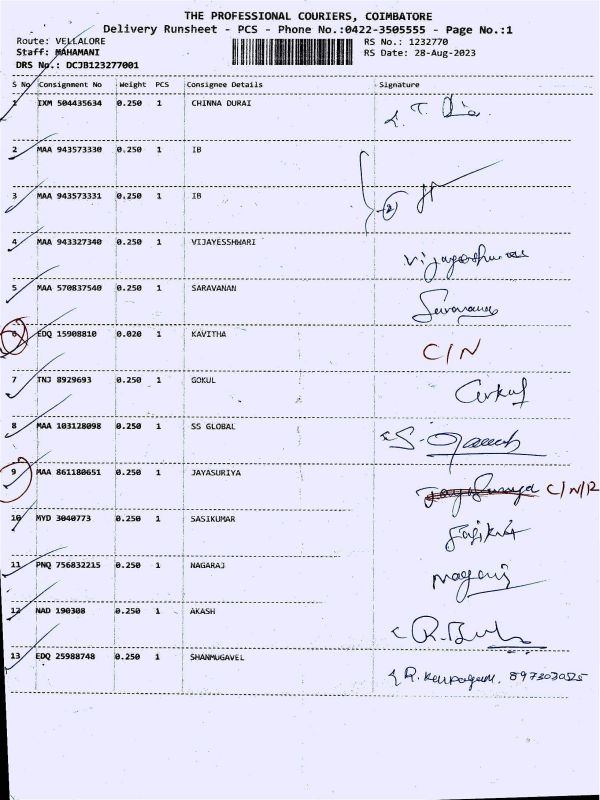 THE PROFESSIONAL COURIERS, COIMBATORE
Delivery Runsheet - PCS - Phone No.:0422-3505555 - Page No.:1
Route: VELLALORE RS No.: 1232770
Staff: MAHAMANI RS Date: 28-Aug-2023
DRS No.: DCJB123277001
S No Consignment No Weight PCS Consignee Details Signature
1 IXM 504435634 0.250 1 CHINNA DURAI
2 MAA 943573330 0.250 1 IB
3 MAA 943573331 0.250 1 IB
4 MAA 943327340 0.250 1 VIJAYESSHWARI
5 MAA 570837540 0.250 1 SARAVANAN
6 EDQ 15908810 0.020 1 KAVITHA C/N
7 TNJ 8929693 0.250 1 GOKUL
8 MAA 103128098 0.250 1 SS GLOBAL
9 MAA 861180651 0.250 1 JAYASURIYA C/N/R
10 MYD 3040773 0.250 1 SASIKUMAR
11 PNQ 756832215 0.250 1 NAGARAJ
12 NAD 190308 0.250 1 AKASH
13 EDQ 25988748 0.250 1 SHANMUGAVEL